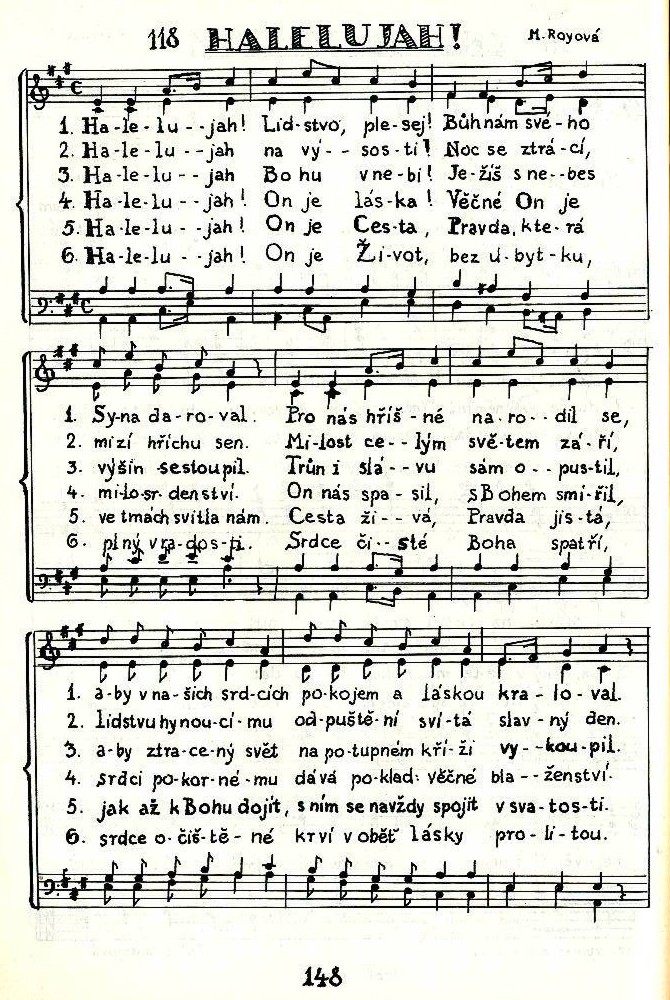 118 HALELUJAH! M. Royová
1. Ha-le-lu--jah! Lid-stvo, ple-sej! Bůh nám své-ho
2. Ha-le-lu--jah na vý--sos-ti! Noc se ztrá-cí,
3. Ha-le-lu--jah! Bo hu v ne-bi! Je-žíš s ne--bes
4. Ha-le-lu--jah! On je lás-ka! Věčné On je
5. Ha-le-lu--jah! On je Ces-ta, Pravda, kte-rá
6. Ha-le-lu--jah! On je Ži-vot, bez ú-byt-ku,
1. Sy-na da-ro-val. Pro nás hříš-né na-ro--dil se,
2. mizí hříchu sen. Mi-lost ce--lým svě-tem zá-ří,
3. výšin sestoupil. Trůn i slá--vu sám o--pus-til,
4. mi-lo-sr-denství. On nás spa-sil, s Bohem smí-řil,
5. ve tmách svítla nám. Cesta ži--vá, Pravda jis-tá,
6. plný v ra-dos-ti. Srdce či--sté Boha spatří,
1. a-by v na-šich srd-cích po-kojem a láskou kra-lo-val.
2. lidstvu hy nou-cí-mu od-puště-ní sví-tá slav-ný den.
3. a-by ztra-ce-ný svět na po-tupném kří-ži vy--kou-pil.
4. srdci po-kor-né-mu dává po-klad: věčné bla--ženství.
5. jak až k Bohu dojít, s ním se navždy spojit v sva-tos-ti.
6. srdce o-čiš-tě-né krví v oběť lásky pro-li-tou.
148